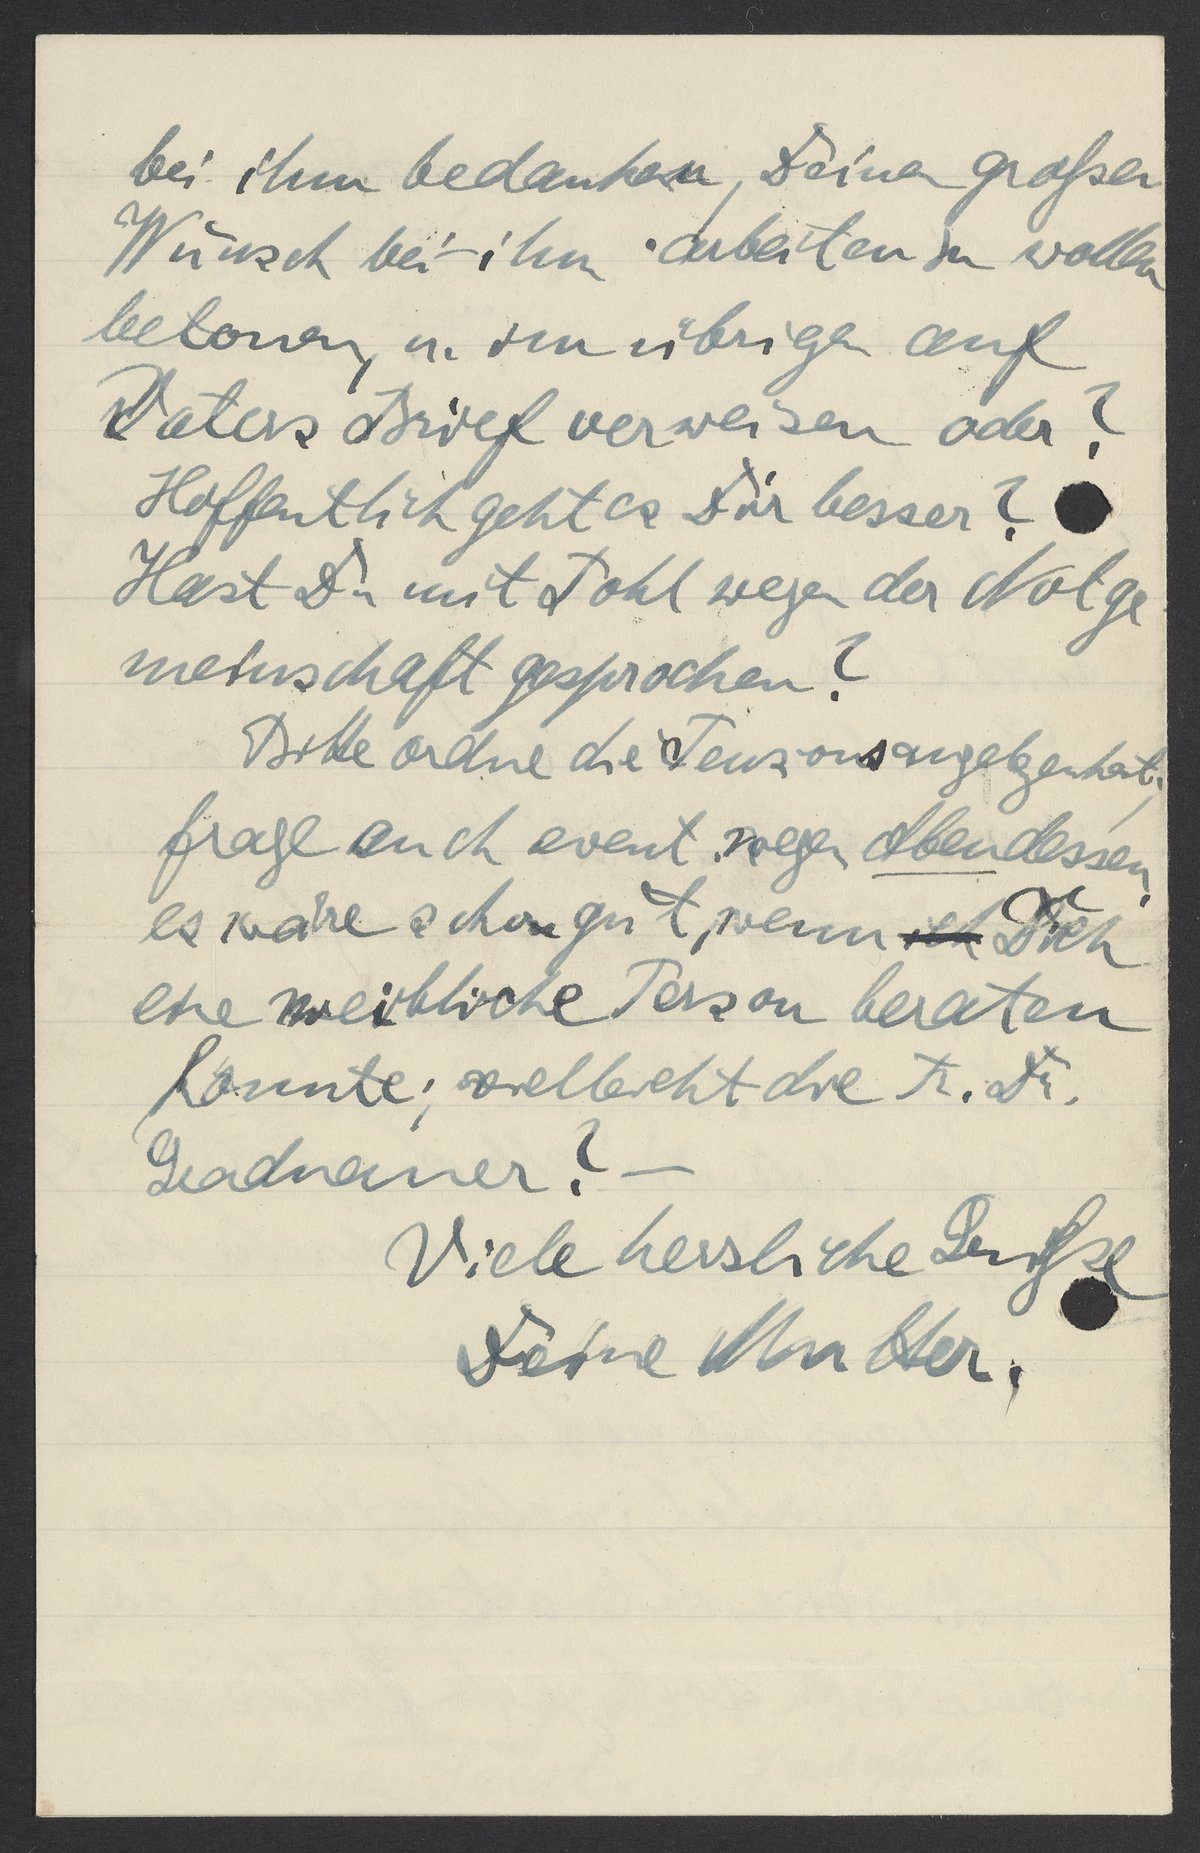 bei ihm bedanken, Deinen großen
Wunsch bei ihm arbeiten zu wollen
betonen, u. im übrigen auf
Vaters Brief verweisen oder?
Hoffentlich geht es Dir besser?
Hast Du mit Pohl wegen der Notge
meinschaft gesprochen?
Bitte ordne die Pensionsangelegenheit,
frage auch event. wegen Abendessen,
es wäre schon gut, wenn ich Dich
eine weibliche Person beraten
könnte; vielleicht die Fr. Dr.
Gradnauer? —
Viele herzliche Grüße
Deine Mutter.